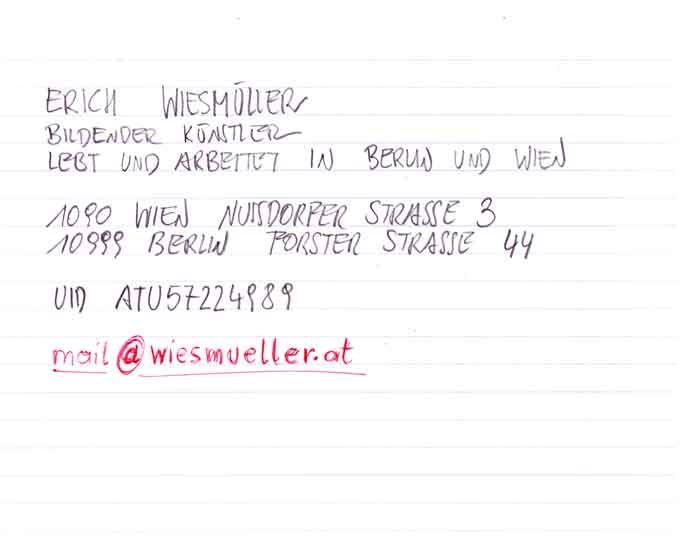 ERICH WIESMÜLLER
BILDENDER KÜNSTLER
LEBT UND ARBEITET IN BERLIN UND WIEN
1090 WIEN NUSSDORFER STRASSE 3
10999 BERLIN FORSTER STRASSE 44
UID ATU57224989
mail@wiesmueller.at